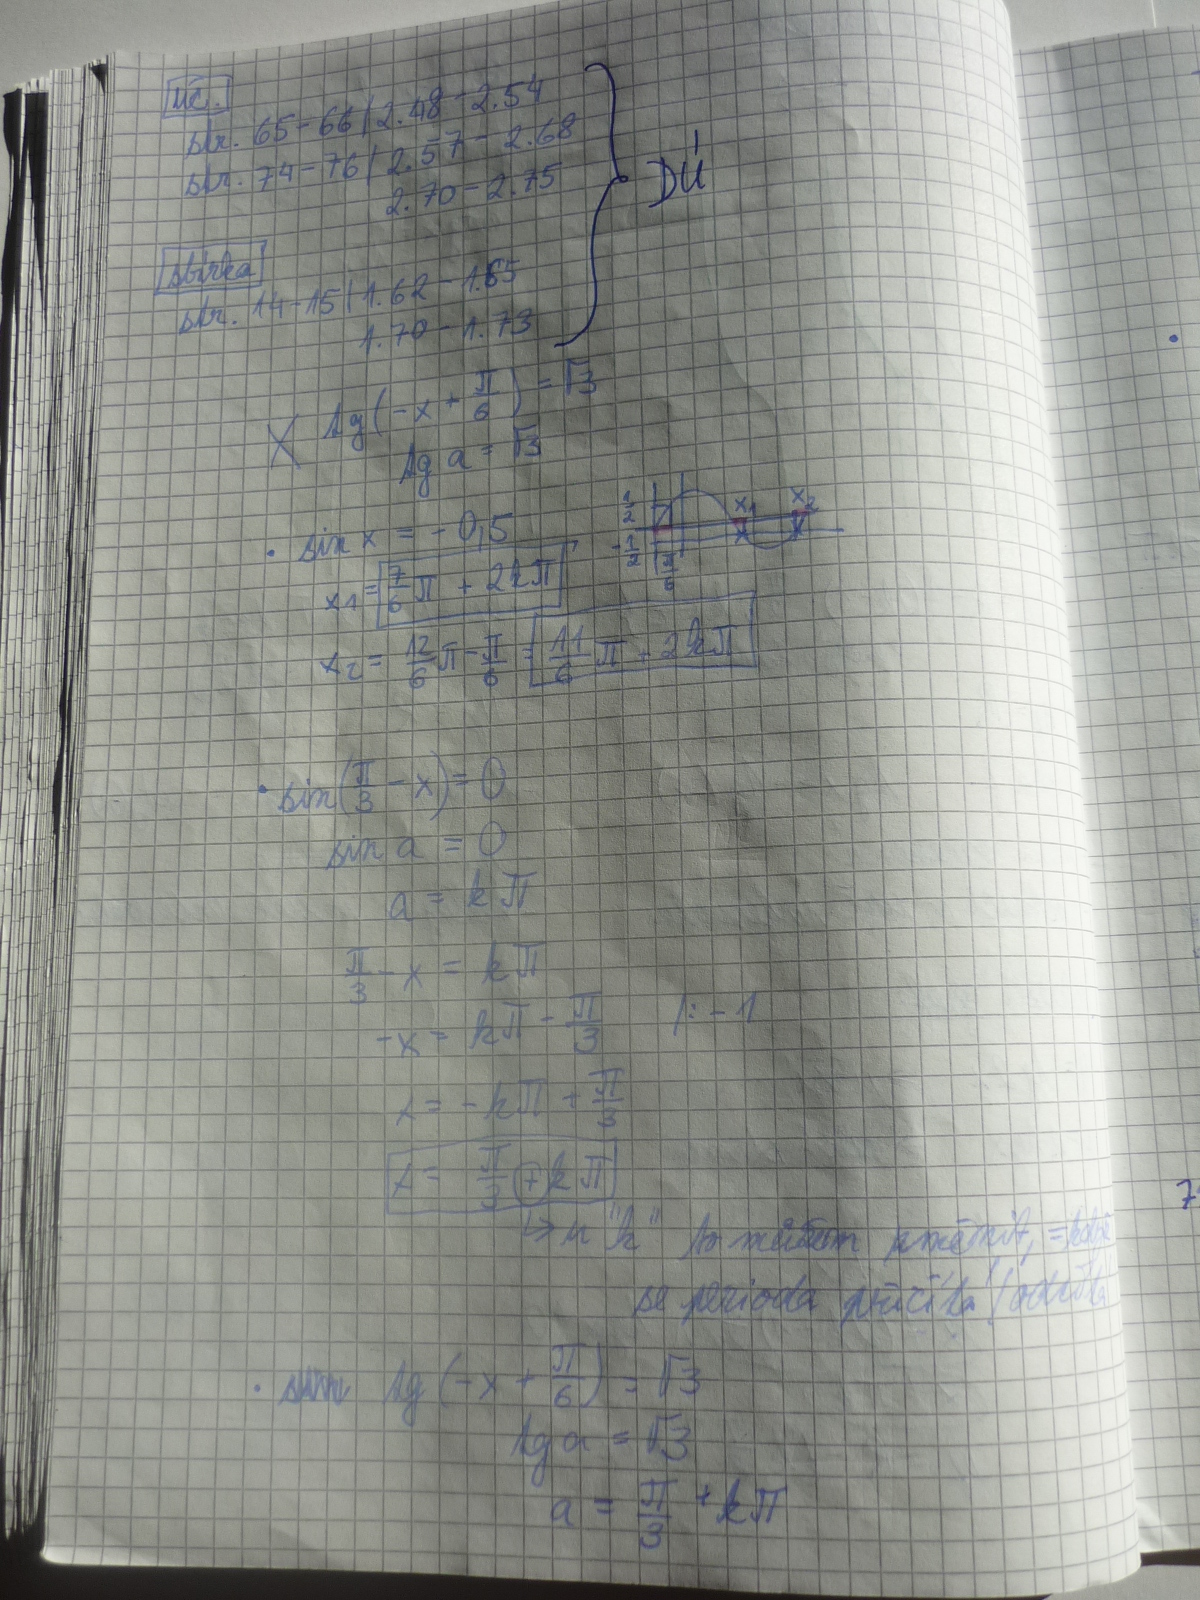 uč.
str. 65-66/2.48-2.54
str. 74-76/2.57-2.68
2.70-2.75
DÚ
sbírka
str. 14-15/1.62-1.65
1.70-1.73
X tg(-x + π/6) = √3
tg a = √3
· sin x = -0,5
x1 = 7/6 π + 2kπ
x2 = 12/6 π - π/6 = 11/6 π + 2kπ
1/2
-1/2
π/6
x1
x2
· sin(π/3 - x) = 0
sin a = 0
a = kπ
π/3 - x = kπ
-x = kπ - π/3 /: -1
x = -kπ + π/3
x = π/3 + kπ
↳ u "k" to můžem změnit,
se perioda přičítá/
· tg(-x + π/6) = √3
tg a = √3
a = π/3 + kπ